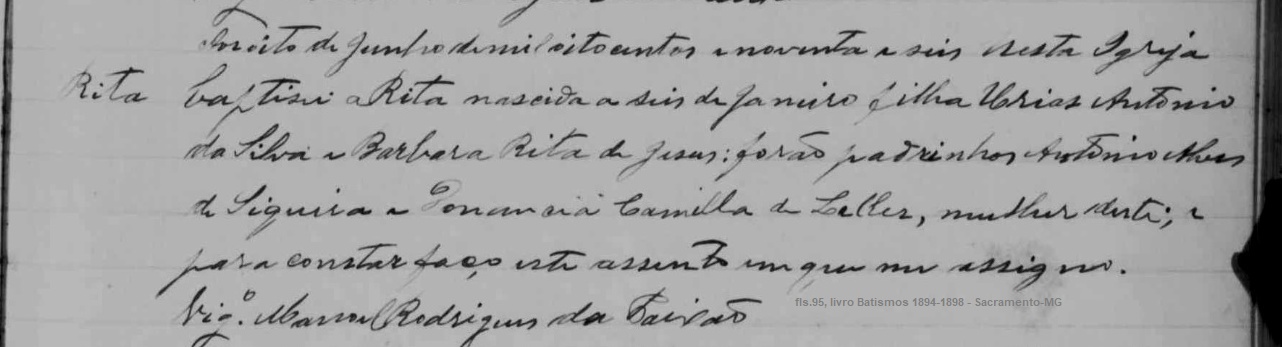 oito de Junho de mil oitocentos e noventa e seis nesta Igreja
Rita baptisei a Rita nascida a seis de Janeiro filha Urias Antônio
da Silva e Barbara Rita de Jesus; forão padrinhos Antônio Alves
de Siqueira e Camilla de Lelles, mulher deste; e
para constar faço este assento em que me assigno.
Vigº. Manoel Rodrigues da Paixão
fls.95, livro Batismos 1894-1898 - Sacramento-MG